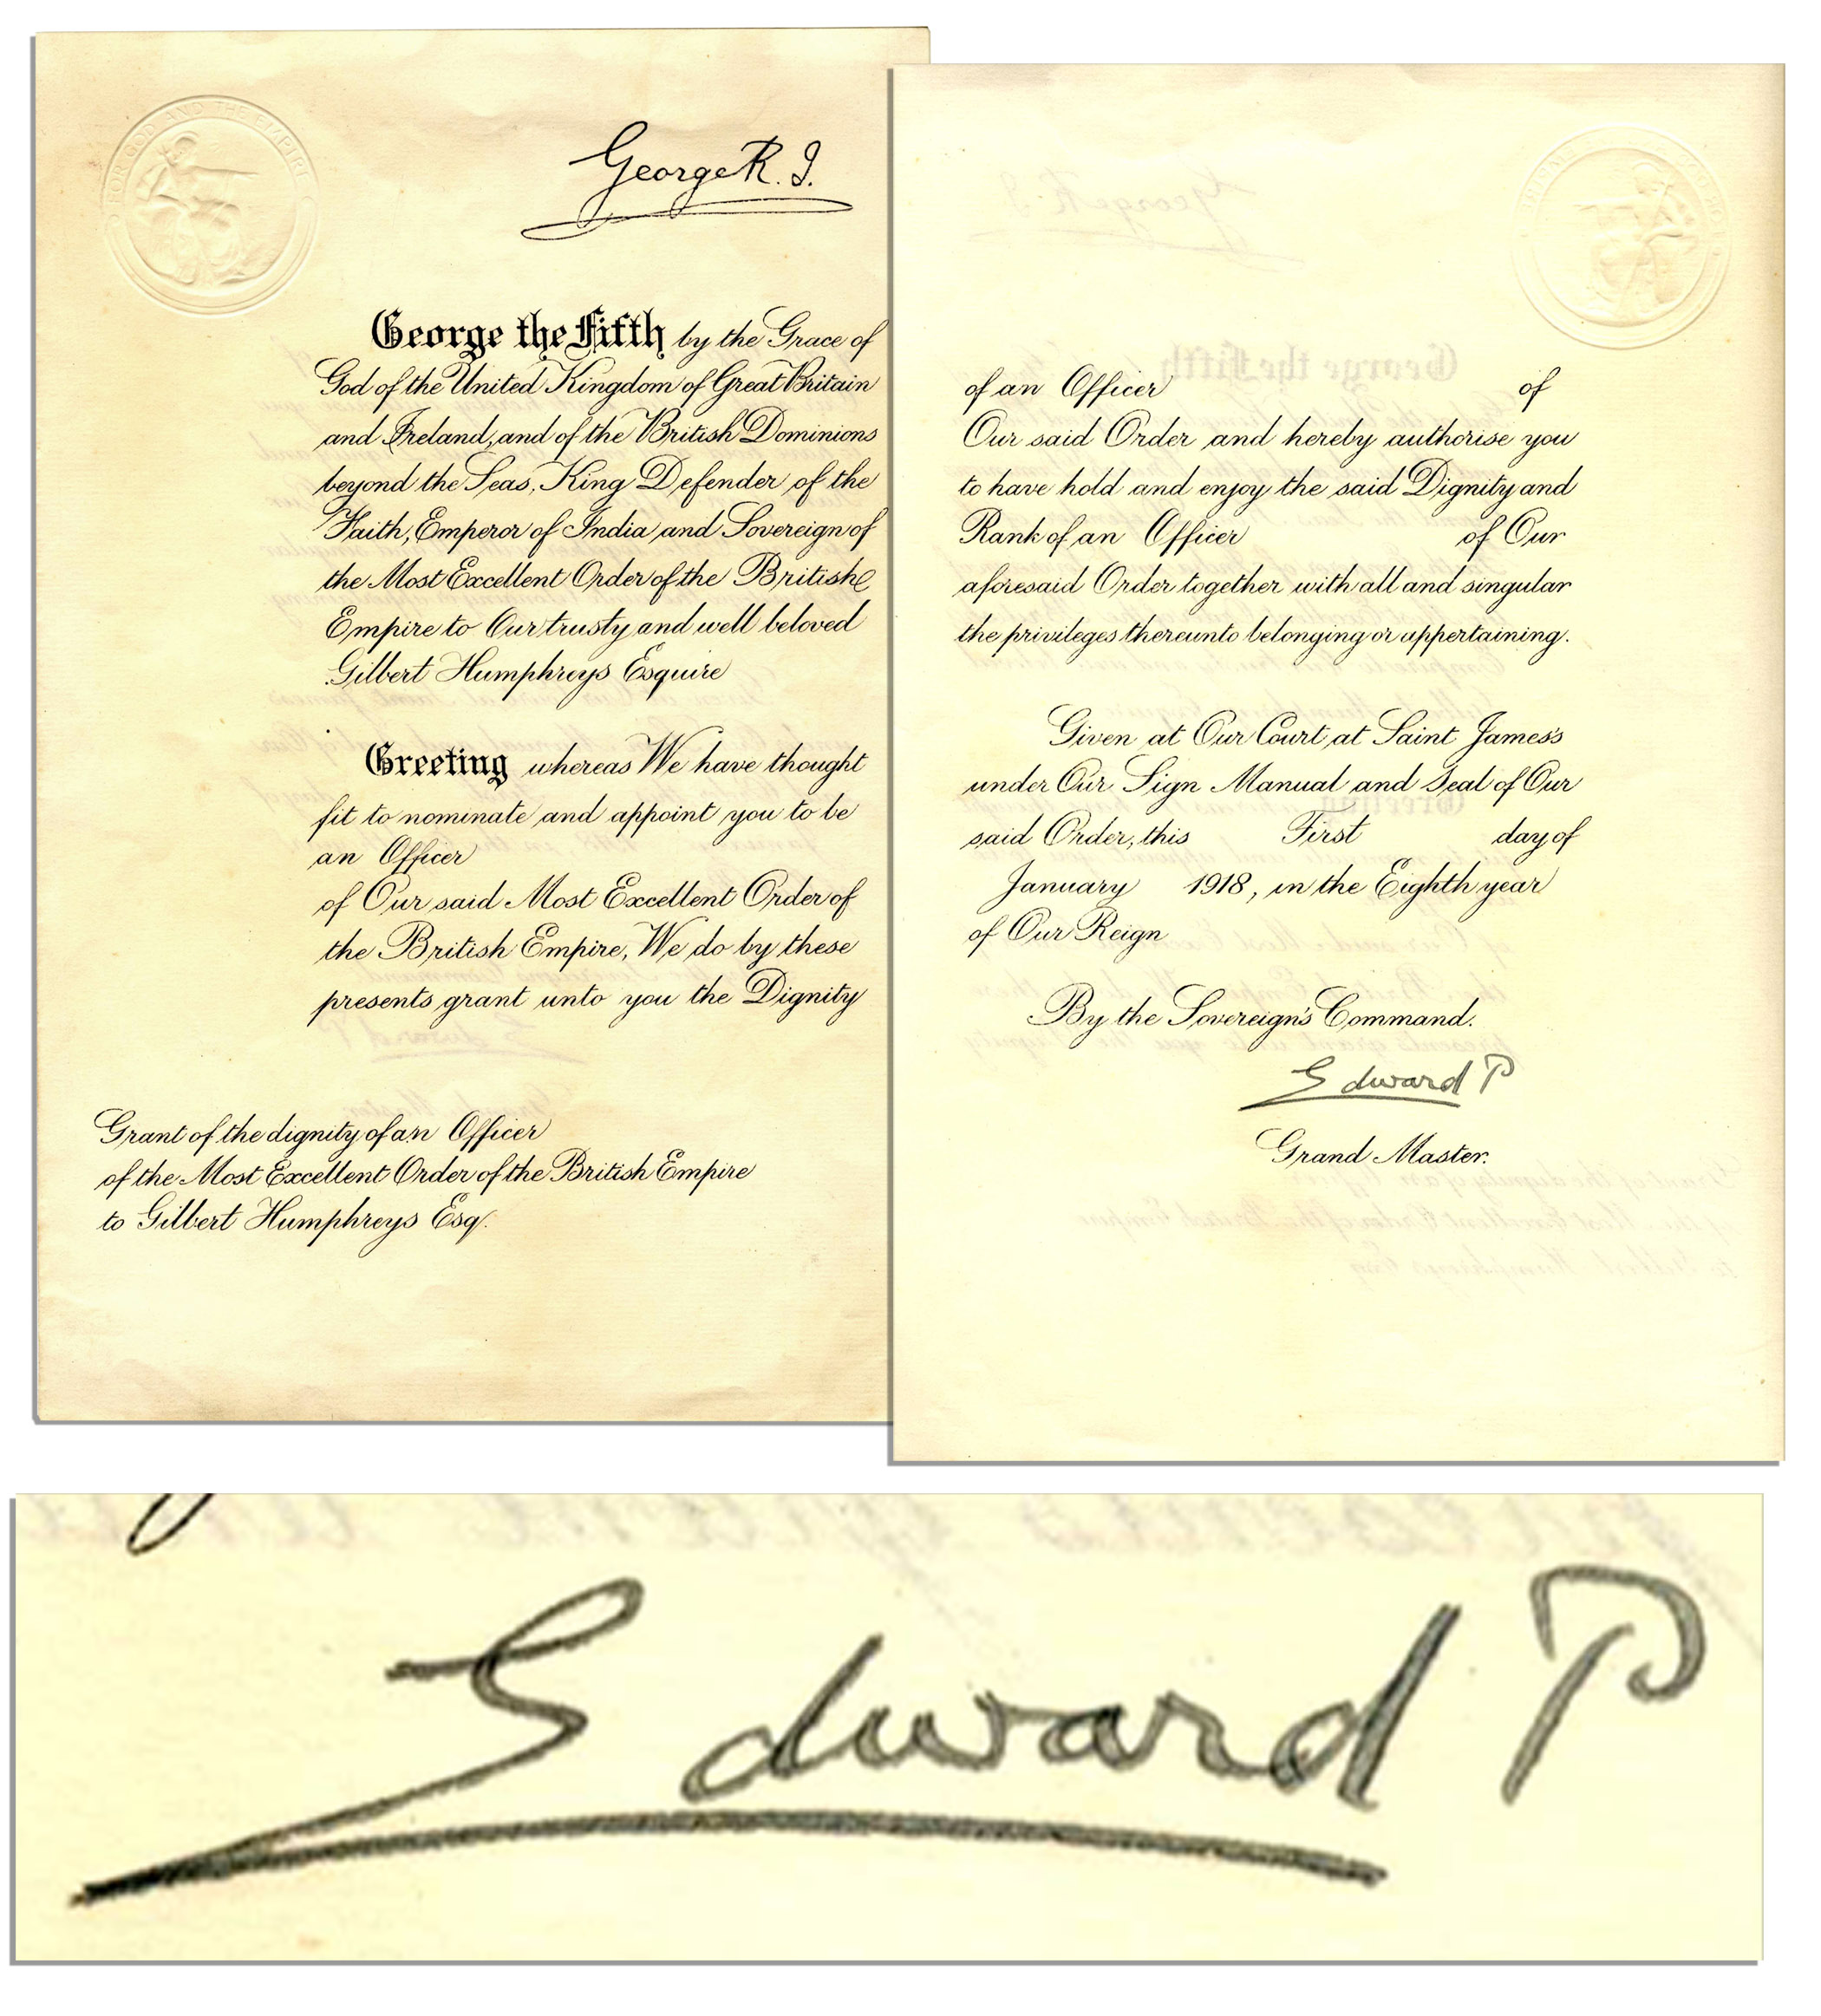 FOR GOD AND THE EMPIRE
George R. I.
George the Fifth by the Grace of
God of the United Kingdom of Great Britain
and Ireland, and of the British Dominions
beyond the Seas, King Defender of the
Faith, Emperor of India and Sovereign of
the Most Excellent Order of the British
Empire to Our trusty and well beloved
Gilbert Humphreys Esquire
Greeting whereas We have thought
fit to nominate and appoint you to be
an Officer
of Our said Most Excellent Order of
the British Empire, We do by these
presents grant unto you the Dignity
Grant of the dignity of an Officer
of the Most Excellent Order of the British Empire
to Gilbert Humphreys Esq.
of an Officer of
Our said Order and hereby authorise you
to have hold and enjoy the said Dignity and
Rank of an Officer of Our
aforesaid Order together with all and singular
the privileges thereunto belonging or appertaining.
Given at Our Court at Saint James's
under Our Sign Manual and Seal of Our
said Order, this First day of
January 1918, in the Eighth year
of Our Reign
By the Sovereign's Command.
Edward P
Grand Master.
Edward P